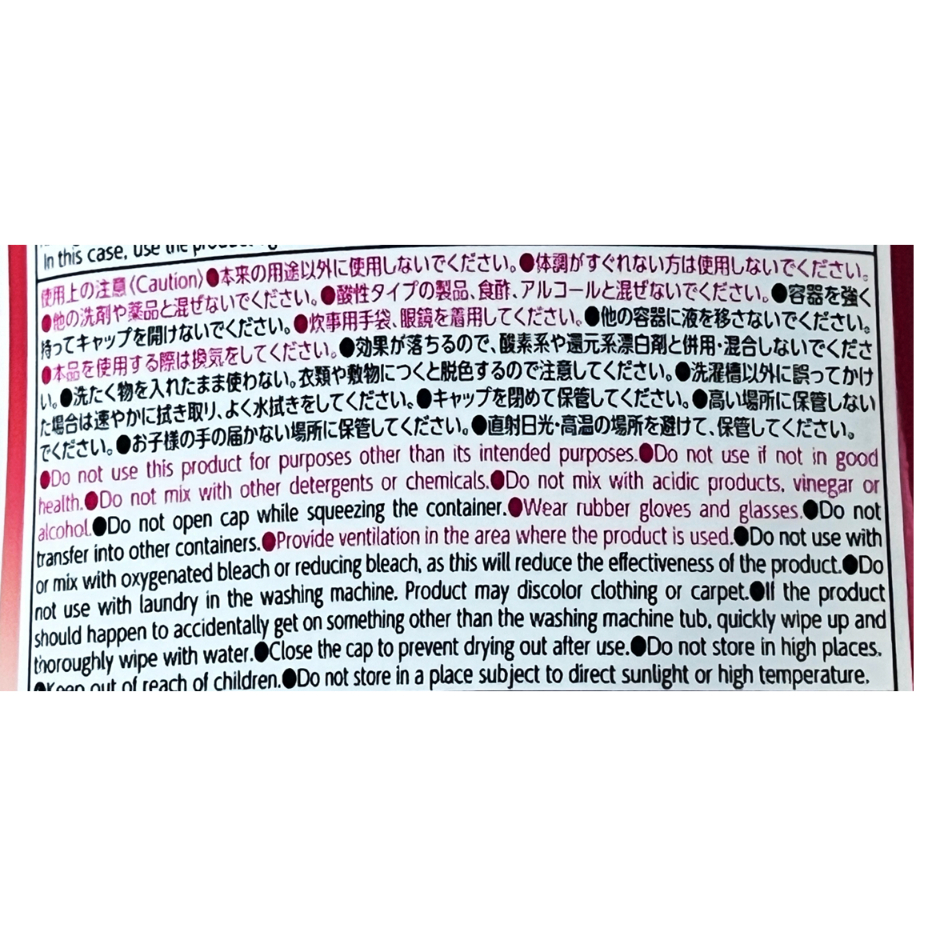 In this case, use the
使用上の注意〈Caution〉●本来の用途以外に使用しないでください。●体調がすぐれない方は使用しないでください。
●他の洗剤や薬品と混ぜないでください。●酸性タイプの製品、食酢、アルコールと混ぜないでください。●容器を強く
持ってキャップを開けないでください。●炊事用手袋、眼鏡を着用してください。●他の容器に液を移さないでください。
●本品を使用する際は換気をしてください。●効果が落ちるので、酸素系や還元系漂白剤と併用・混合しないでくださ
い。●洗たく物を入れたまま使わない。衣類や敷物につくと脱色するので注意してください。●洗濯槽以外に誤ってかけ
た場合は速やかに拭き取り、よく水拭きをしてください。●キャップを閉めて保管してください。●高い場所に保管しない
でください。●お子様の手の届かない場所に保管してください。●直射日光・高温の場所を避けて、保管してください。
●Do not use this product for purposes other than its intended purposes.●Do not use if not in good
health.●Do not mix with other detergents or chemlcals.●Do not mix with acidic products, vinegar or
alcohol.●Do not open cap while squeezing the container.●Wear rubber gloves and glasses.●Do not
transfer into other containers.●Provide ventilation in the area where the product is used.●Do not use with
or mix with oxygenated bleach or reducing bleach, as this will reduce the effectiveness of the product.●Do
not use with laundry in the washing machine. Product may discolor clothing or carpet.●If the product
should happen to accidentally get on something other than the washing machine tub, quickly wipe up and
thoroughly wipe with water.●Close the cap to prevent drying out after use.●Do not store in high places.
●Keep out of reach of children.●Do not store in a place subject to direct sunlight or high temperature.